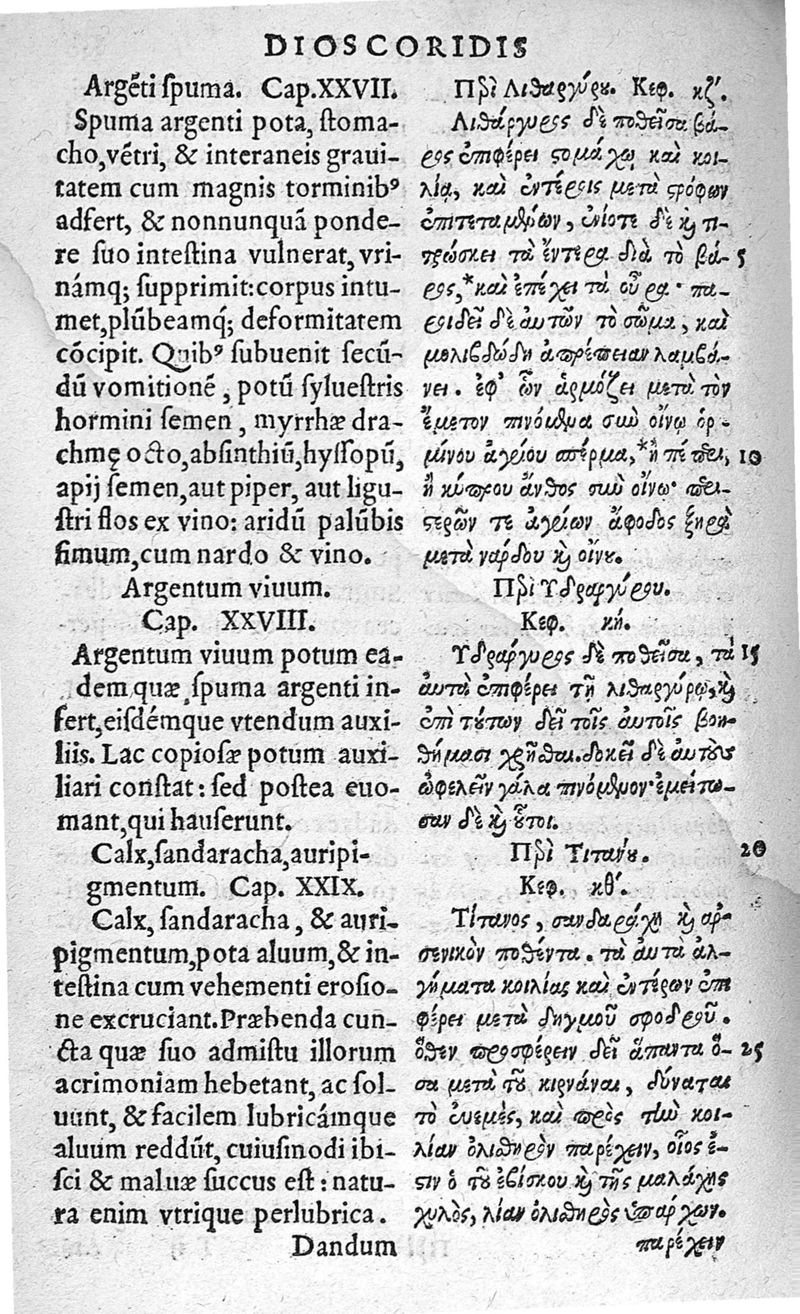 DIOSCORIDIS
Argẽti ſpuma. Cap.XXVII.
Spuma argenti pota, ſtoma-
cho,vẽtri, & interaneis graui-
tatem cum magnis torminibꝰ
adfert, & nonnunquã ponde-
re ſuo inteſtina vulnerat, vri-
námq; ſupprimit:corpus intu-
met,plũbeamq́; deformitatem
cõcipit. Quibꝰ ſubuenit ſecũ-
dũ vomitionẽ, potũ ſylueſtris
hormini ſemen, myrrhæ dra-
chmę octo,abſinthiũ,hyſſopũ,
apij ſemen,aut piper, aut ligu-
ſtri flos ex vino: aridũ palũbis
fimum,cum nardo & vino.
Argentum viuum.
Cap. XXVIII.
Argentum viuum potum ea-
dem,quæ ſpuma argenti in-
fert,eiſdémque vtendum auxi-
liis. Lac copioſæ potum auxi-
liari conſtat: ſed poſtea euo-
mant,qui hauſerunt.
Calx,ſandaracha,auripi-
gmentum. Cap. XXIX.
Calx, ſandaracha, & auri-
pigmentum,pota aluum,& in-
teſtina cum vehementi eroſio-
ne excruciant.Præbenda cun-
cta quæ ſuo admiſtu illorum
acrimoniam hebetant, ac ſol-
uunt, & facilem lubricámque
aluum reddũt, cuiuſmodi ibi-
ſci & maluæ ſuccus eſt: natu-
ra enim vtrique perlubrica.
Dandum
Περὶ Λιθαργύρου. Κεφ. κζʹ.
Λιθάργυρος δὲ ποθεῖσα βά-
ρος ἐπιφέρει στομάχῳ καὶ κοι-
λίᾳ, καὶ ἐντέροις μετὰ στρόφων
ἐπιτεταμένων, ἐνίοτε δὲ καὶ τι-
τρώσκει τὰ ἔντερα διὰ τὸ βά- 5
ρος,*καὶ ἐπέχει τὰ οὖρα· πα-
ροιδεῖ δὲ αὐτῶν τὸ σῶμα, καὶ
μολιβδώδη ἀπρέπειαν λαμβά-
νει. ἐφ' ὧν ἁρμόζει μετὰ τὸν
ἔμετον πινόμενα σὺν οἴνῳ ὁρ-
μίνου ἀγρίου σπέρμα,*ἢ πέπερι, 10
ἢ κύπρου ἄνθος σὺν οἴνῳ· περι-
στερῶν τε ἀγρίων ἄφοδος ξηρὰ
μετὰ νάρδου καὶ οἴνου.
Περὶ Ὑδραργύρου.
Κεφ. κή.
Ὑδράργυρος δὲ ποθεῖσα, τὰ 15
αὐτὰ ἐπιφέρει τῇ λιθαργύρῳ,καὶ
ἐπὶ τούτων δεῖ τοῖς αὐτοῖς βοη-
θήμασι χρῆσθαι.δοκεῖ δὲ αὐτοὺς
ὠφελεῖν γάλα πινόμενον·ἐμείτω-
σαν δὲ καὶ οὗτοι.
Περὶ Τιτάνου. 20
Κεφ. κθʹ.
Τίτανος, σανδαράχη καὶ ἀρ-
σενικὸν ποθέντα. τὰ αὐτὰ ἀλ-
γήματα κοιλίας καὶ ἐντέρων ἐπι
φέρει μετὰ δηγμοῦ σφοδροῦ.
ὅθεν προσφέρειν δεῖ ἅπαντα ὅ- 25
σα μετὰ τοῦ κιρνάναι, δύναται
τὸ εὐεμὲς, καὶ πρὸς τὴν κοι-
λίαν ὀλισθηρὸν παρέχειν, οἷος ἐ-
στιν ὁ τοῦ ἐβίσκου καὶ τῆς μαλάχης
χυλὸς, λίαν ὀλισθηρὸς ὑπάρχων.
παρέχειν